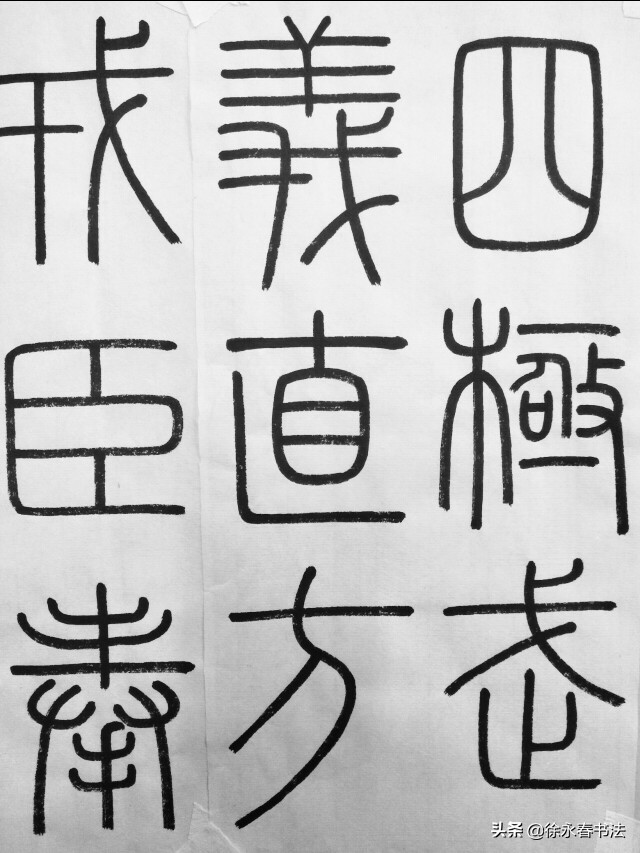 四極武
義直方
戎臣奉
头条 @徐永春书法